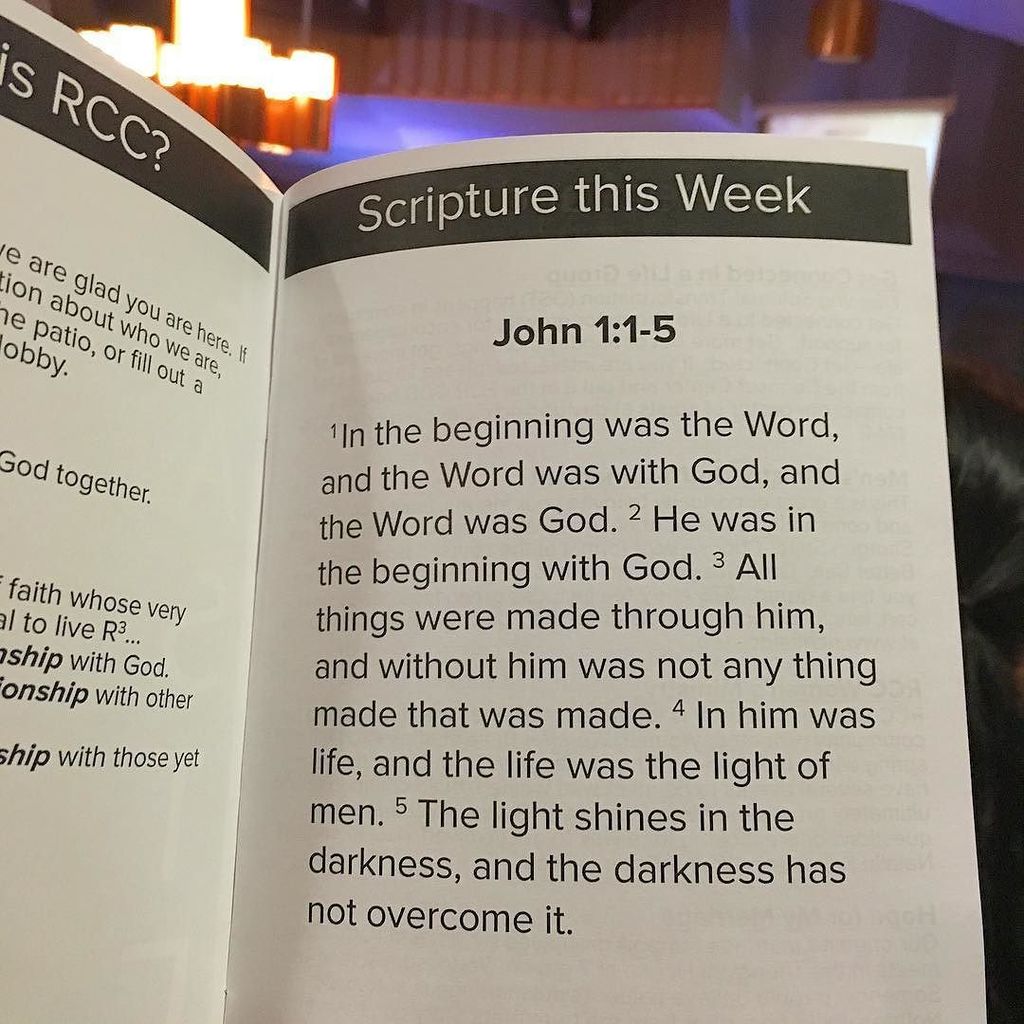 is RCC?
we are glad you are here. If
tion about who we are,
he patio, or fill out a
lobby.
God together.
faith whose very
al to live R³...
nship with God.
ionship with other
ship with those yet
Scripture this Week
John 1:1-5
¹In the beginning was the Word,
and the Word was with God, and
the Word was God. ² He was in
the beginning with God. ³ All
things were made through him,
and without him was not any thing
made that was made. ⁴ In him was
life, and the life was the light of
men. ⁵ The light shines in the
darkness, and the darkness has
not overcome it.